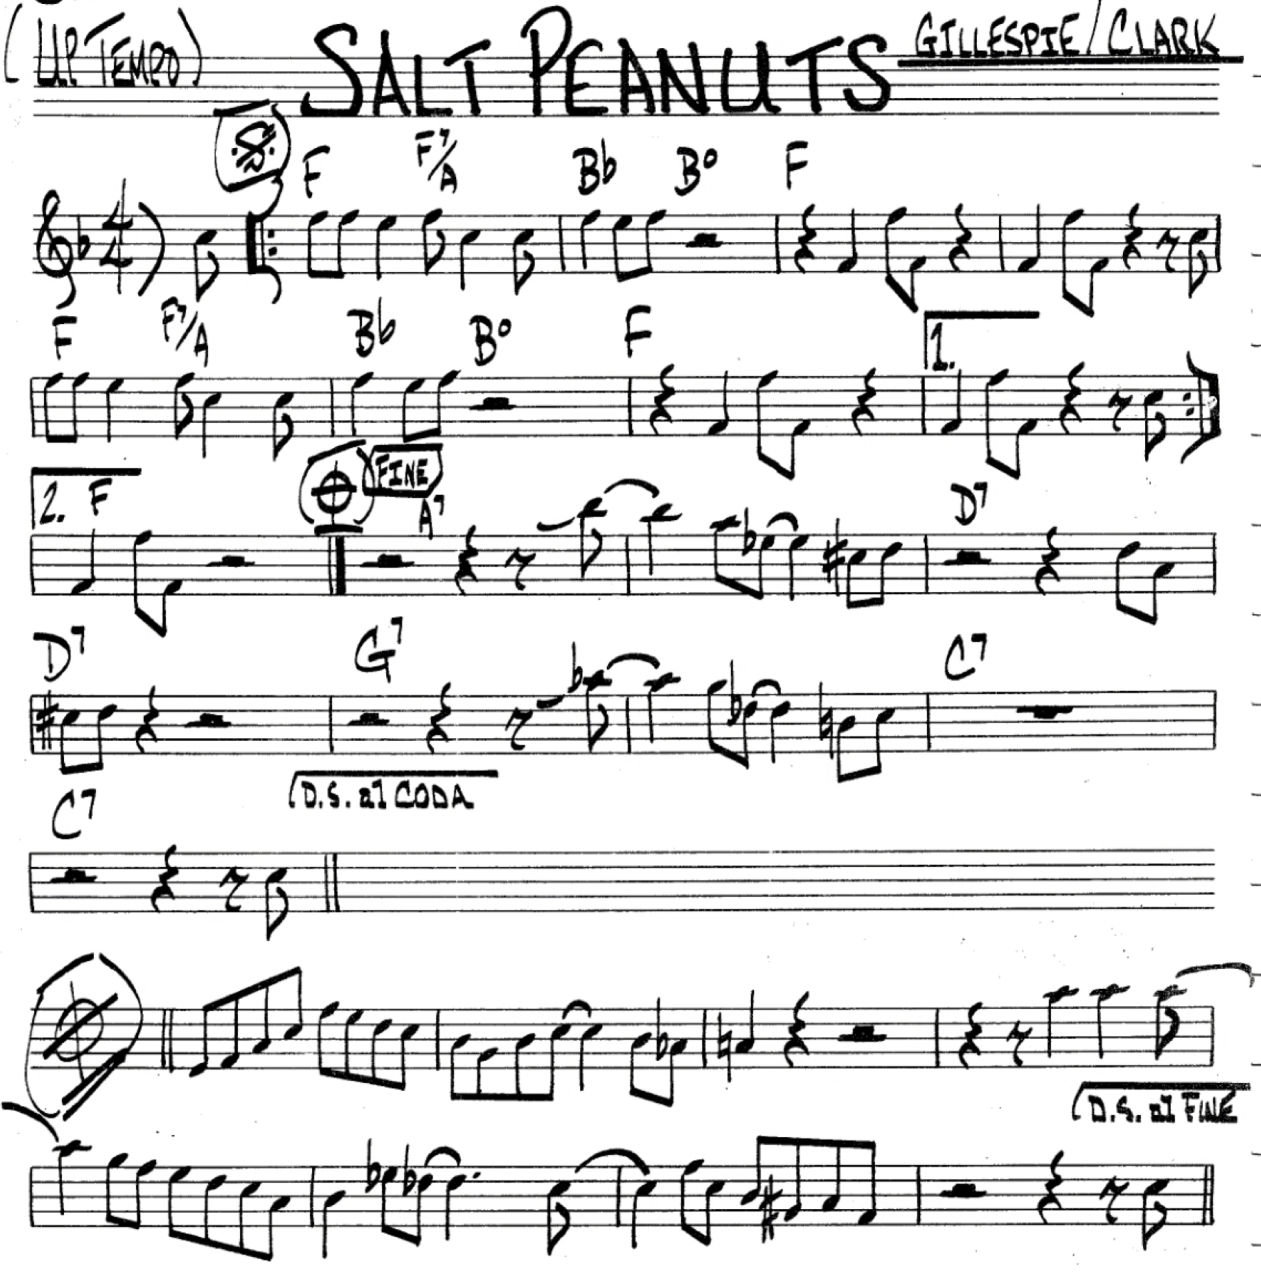 (UP TEMPO) SALT PEANUTS GILLESPIE/CLARK
F F7/A Bb B° F
4/4
F F7/A Bb B° F 1.
2. F FINE A7 D7
D7 G7 C7
D.S. al CODA
C7
D.S. al FINE